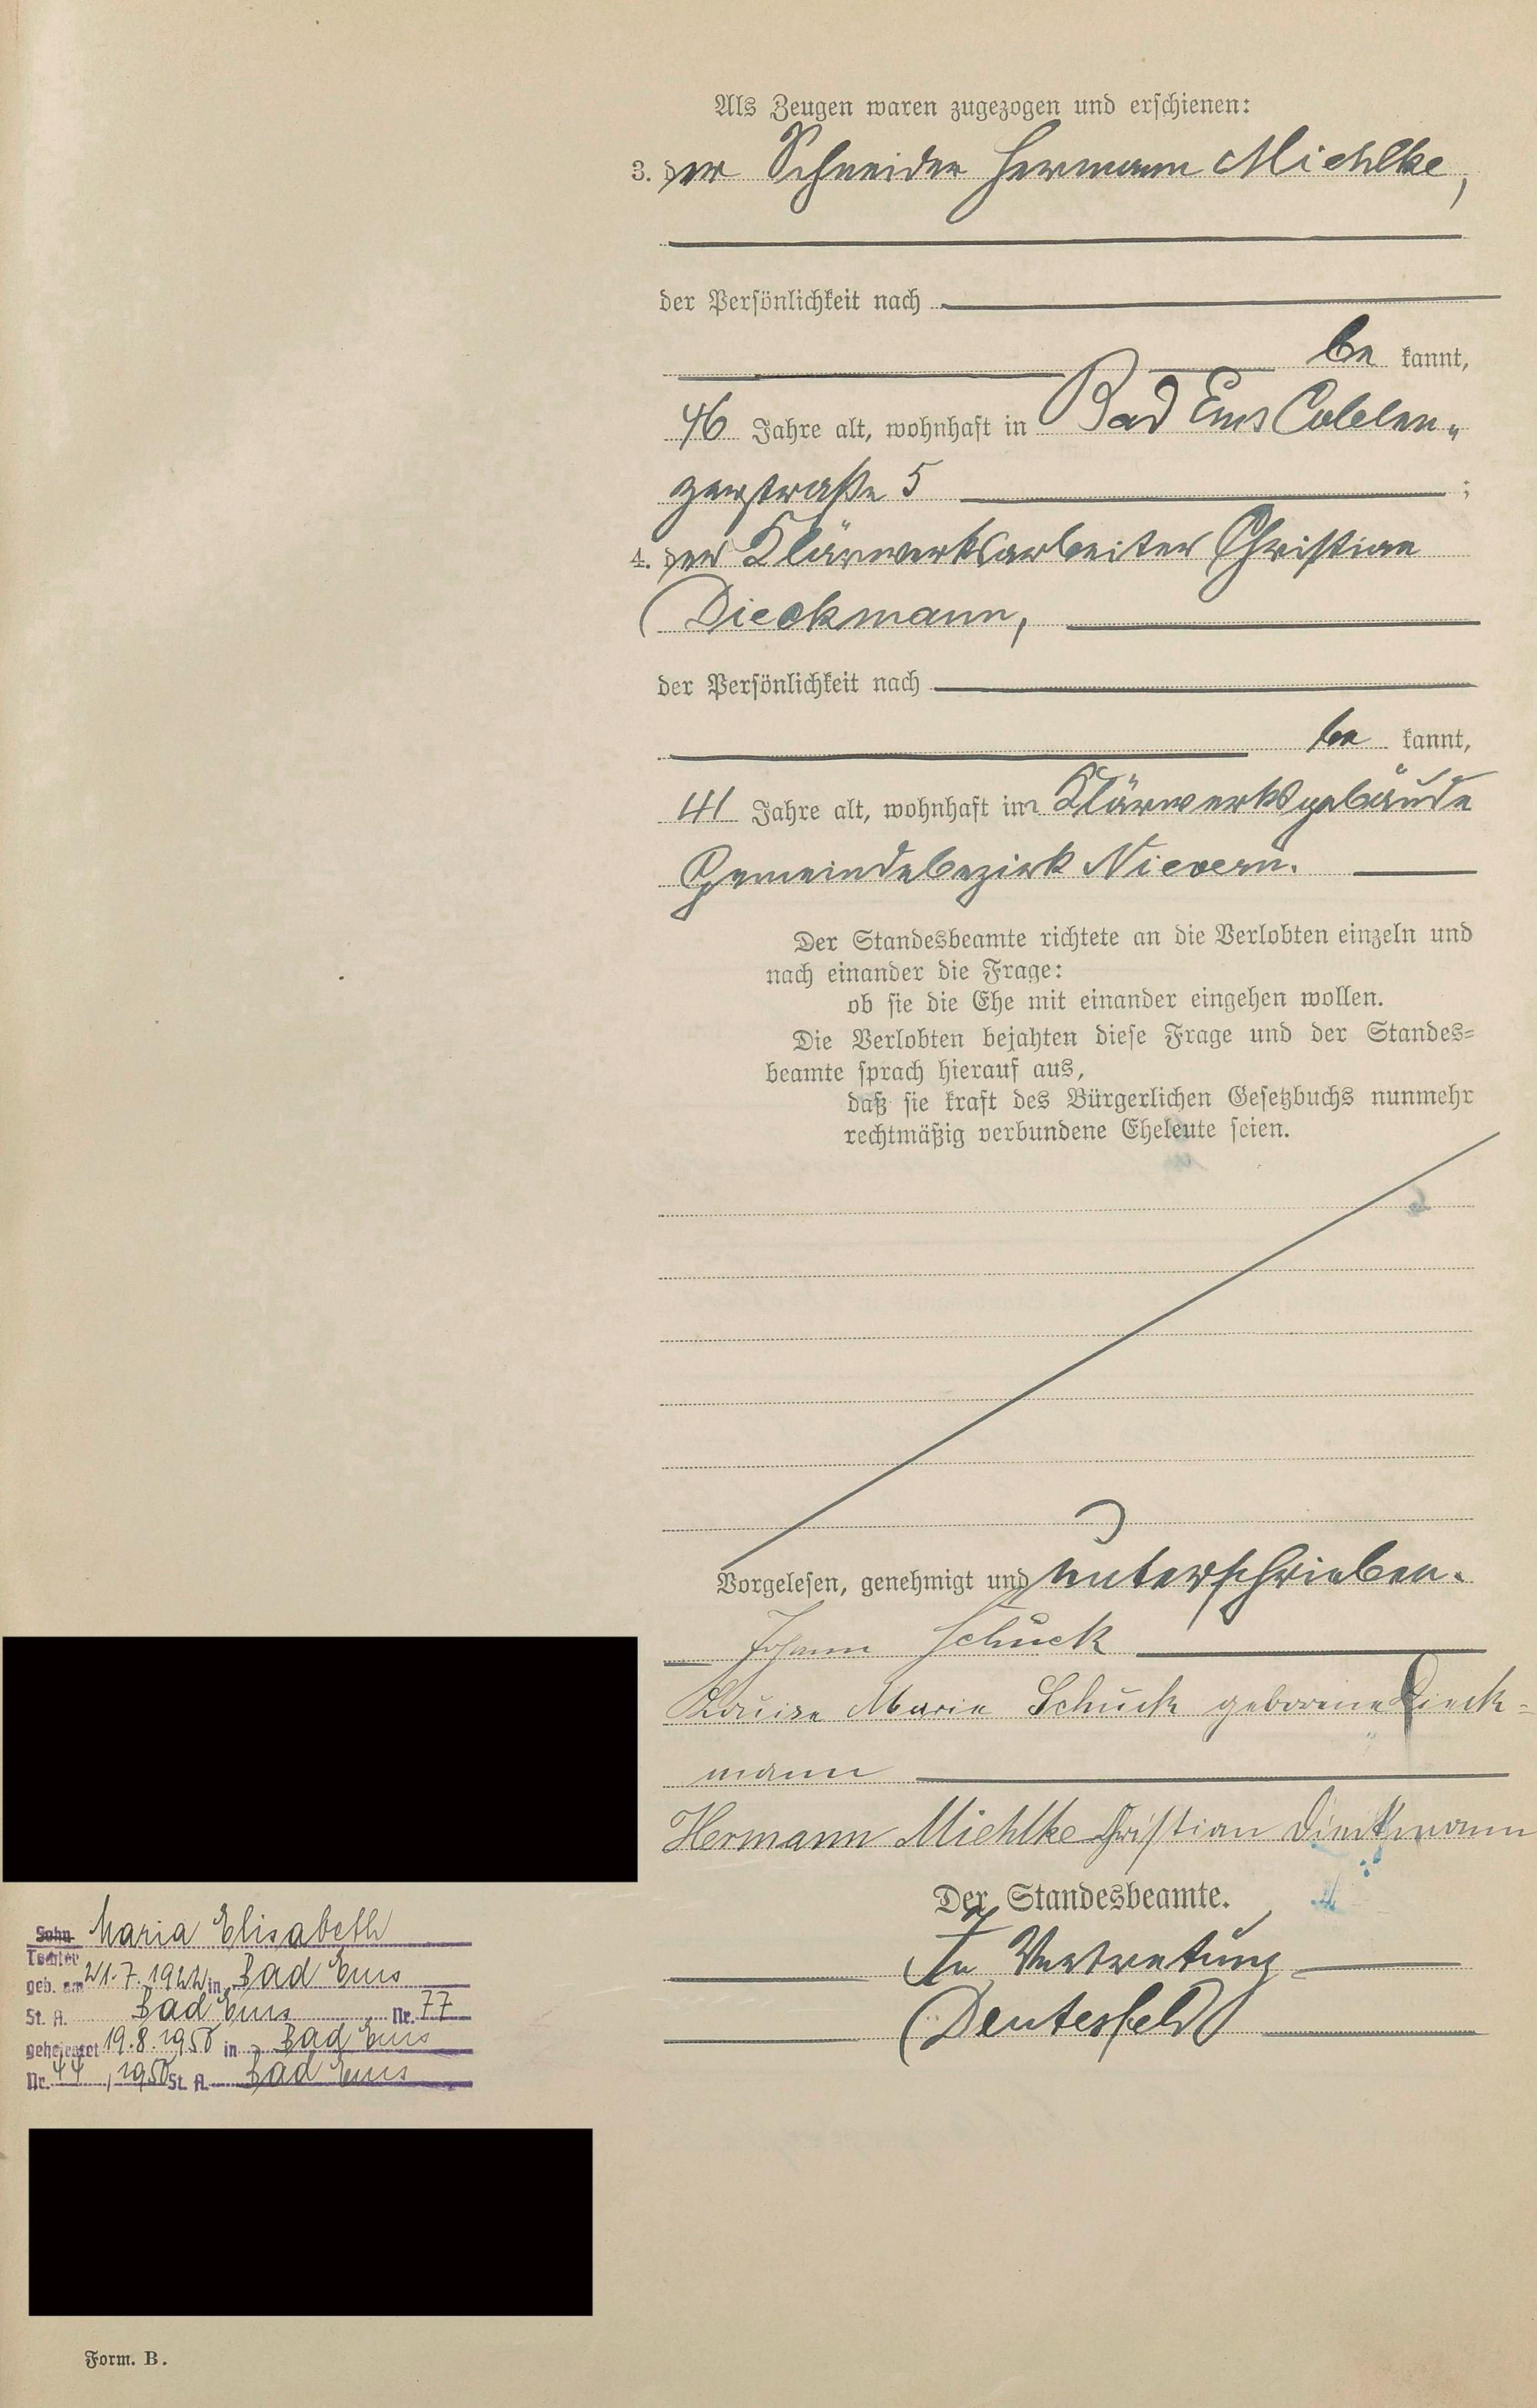 Als Zeugen waren zugezogen und erschienen:
3. der Schneider Hermann Miehlke,
der Persönlichkeit nach
be kannt,
46 Jahre alt, wohnhaft in Bad Ems Coblen„
zerstraße 5 ;
4. der Klärwerksarbeiter Christian
Dieckmann,
der Persönlichkeit nach
be kannt,
41 Jahre alt, wohnhaft im Klärwerksgebäude
Gemeindebezirk Nievern.
Der Standesbeamte richtete an die Verlobten einzeln und
nach einander die Frage:
ob sie die Ehe mit einander eingehen wollen.
Die Verlobten bejahten diese Frage und der Standes-
beamte sprach hierauf aus,
daß sie kraft des Bürgerlichen Gesetzbuchs nunmehr
rechtmäßig verbundene Eheleute seien.
Vorgelesen, genehmigt und unterschrieben.
Johann Schuck
Louise Marie Schuck geborene Dieck-
mann
Hermann Miehlke Christian Dieckmann
Der Standesbeamte.
In Vertretung
Deutesfeld
Sohn Maria Elisabeth
Tochter
geb. am 21.7.1922 in Bad Ems
St. A. Bad Ems Nr. 77
geheiratet 19.8.1950 in Bad Ems
Nr. 44 / 1950 St. A. Bad Ems
Form. B.